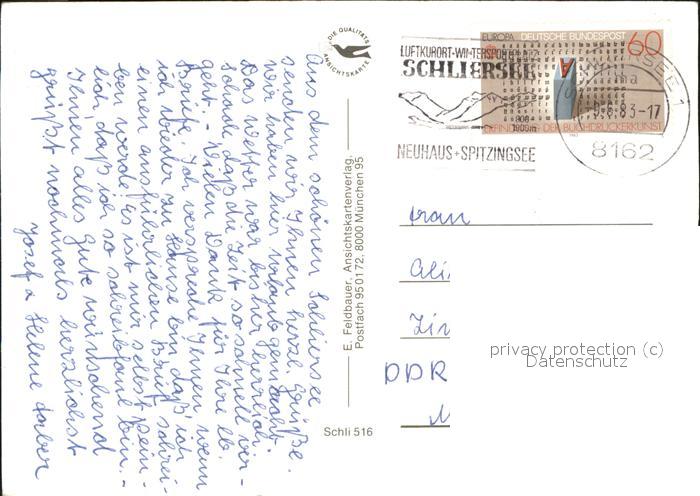 Aus dem schönen Schliersee
senden wir Ihnen herzl. Grüße.
Wir haben hier Urlaub gemacht.
Das Wetter war bisher herrlich.
Schade, daß die Zeit so schnell ver-
geht. - Vielen Dank für Ihre lb.
Briefe. Ich verspreche Ihnen, wenn
ich wieder zu Hause bin, daß ich
einen ausführlichen Brief schrei-
ben werde. Es ist mir selbst pein-
lich, daß ich so schreibfaul bin. -
Ihnen alles Gute wünschend
grüßt nochmals herzlichst
Josef u. Helene
DIE QUALITÄTS
ANSICHTSKARTE
E. Feldbauer, Ansichtskartenverlag,
Postfach 950172, 8000 München 95
Schli 516
LUFTKURORT-WINTERSPORTPLATZ
SCHLIERSEE
800
1800m
NEUHAUS+SPITZINGSEE
EUROPA DEUTSCHE BUNDESPOST 60
DER BUCHDRUCKERKUNST
SCHLIERSEE 1
83-17
8162
Frau
DDR
privacy protection (c)
Datenschutz